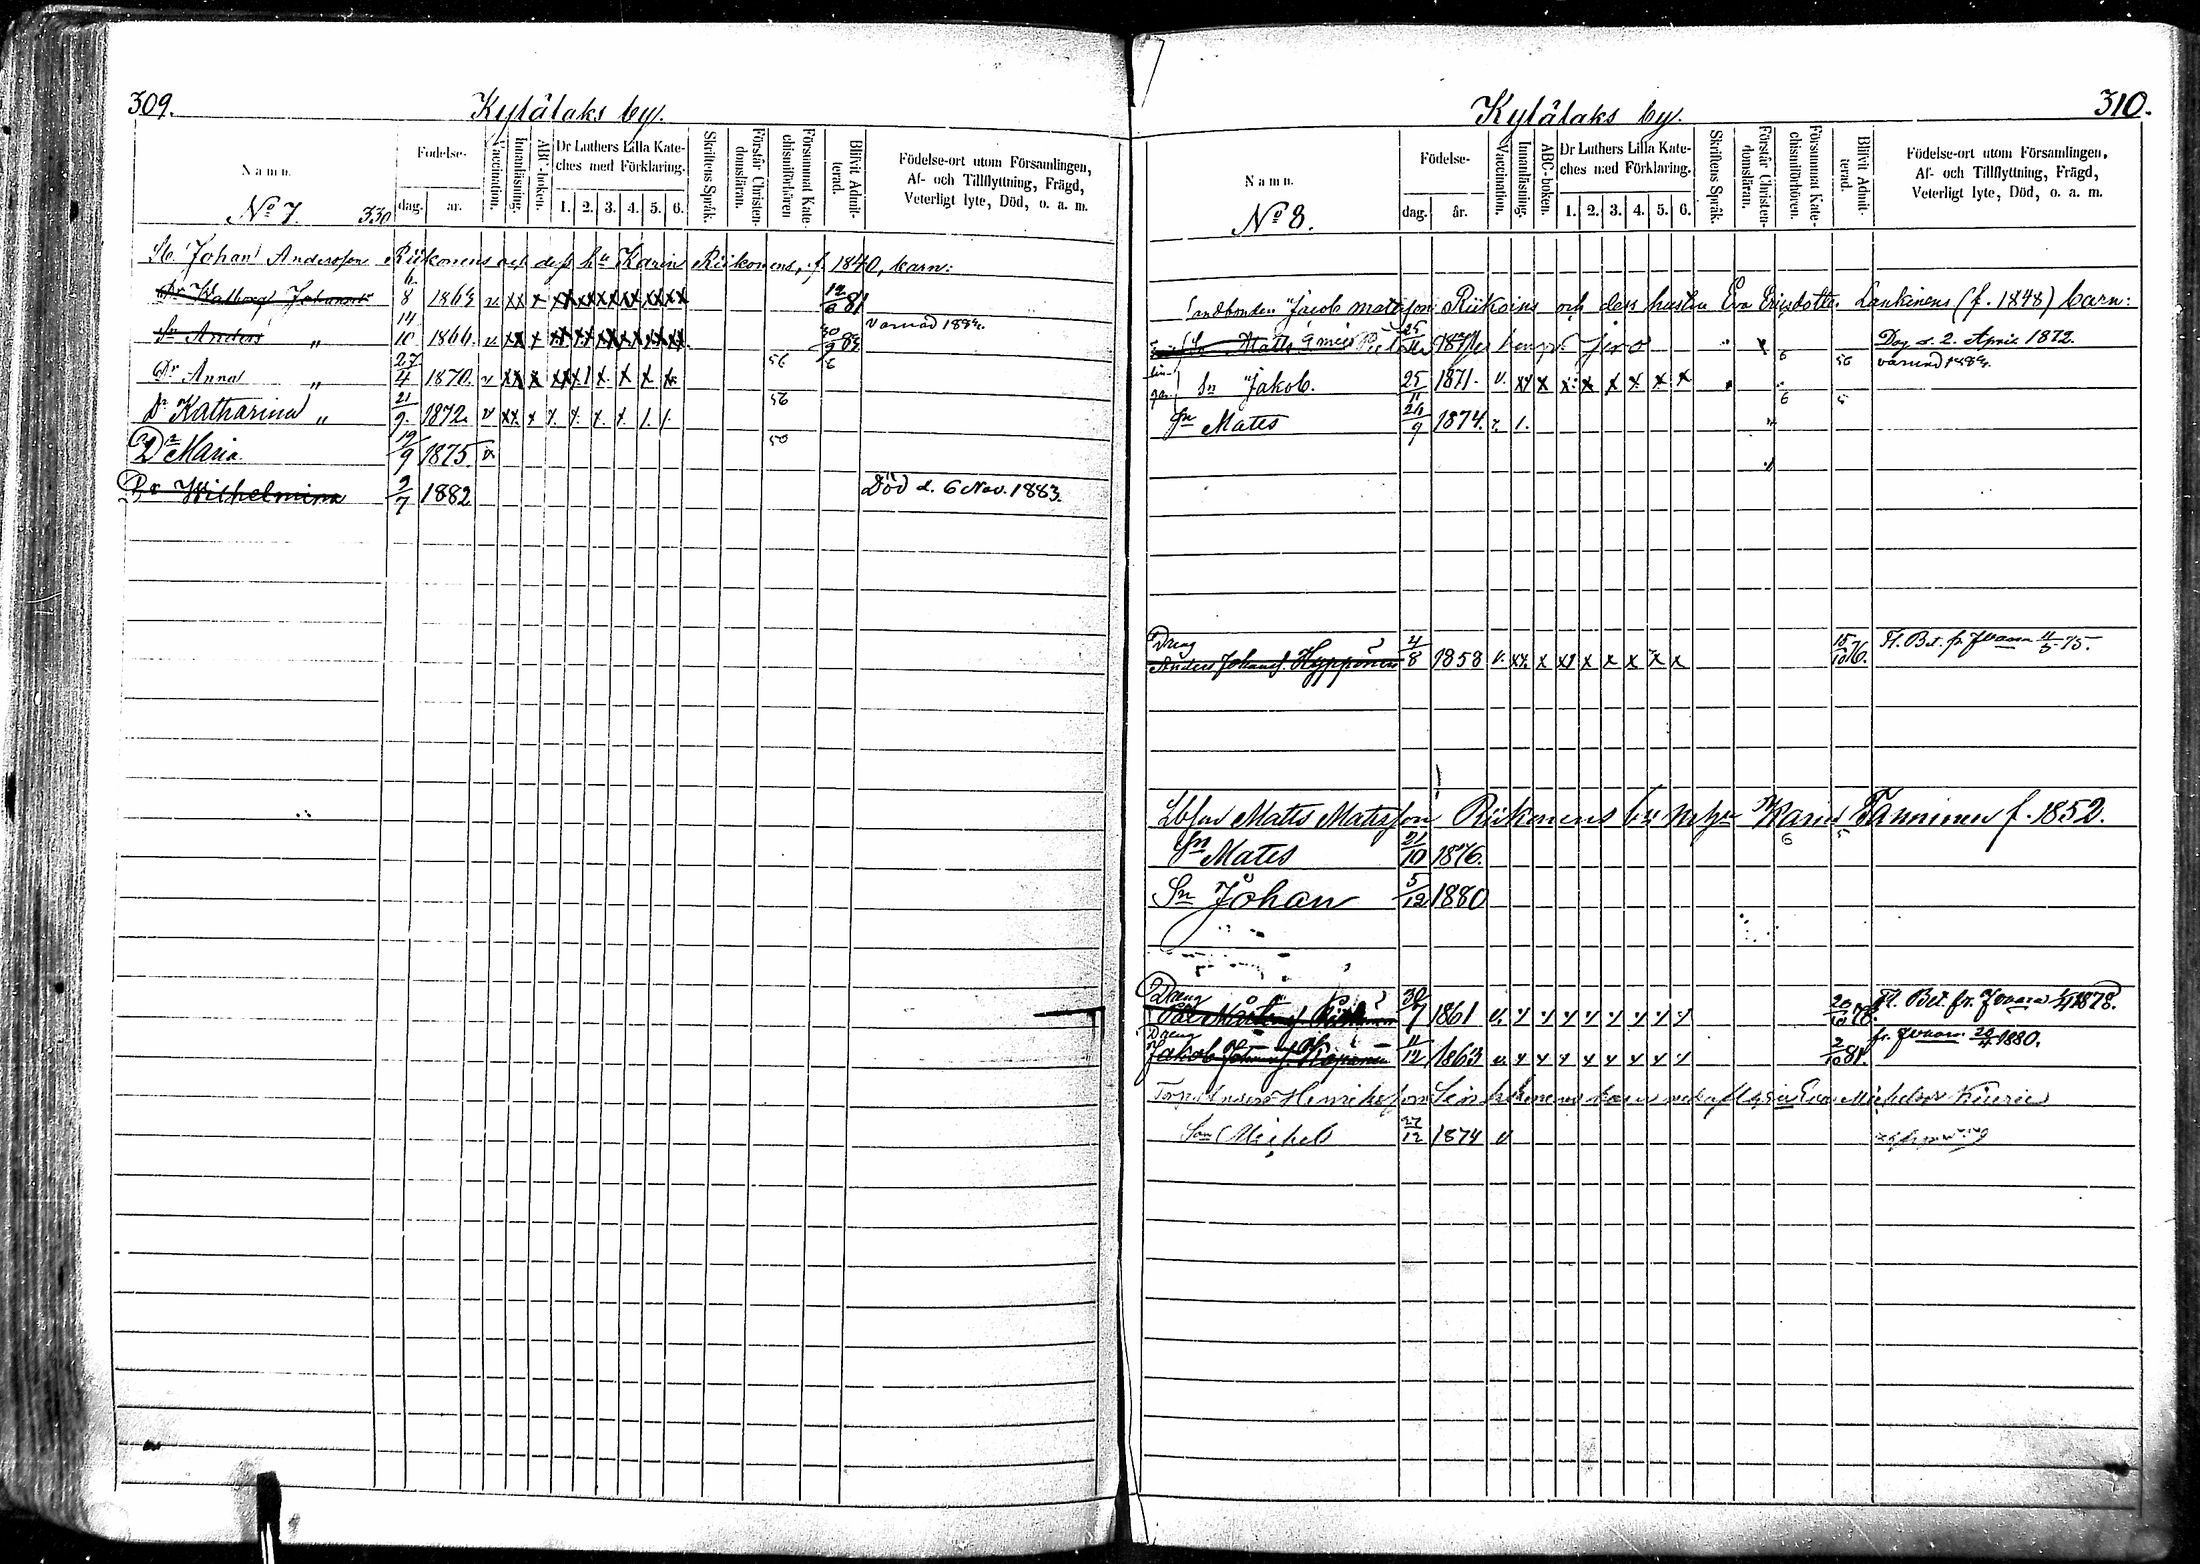 309.
Kylälaks by.
Namn.
Födelse-
dag.
år.
Vaccination.
Innanläsning.
ABC-boken.
Dr Luthers Lilla Kate-
ches med Förklaring.
1. 2. 3. 4. 5. 6.
Skriftens Språk.
Förstår Christen-
domsläran.
Försummat Kate-
chismiförhören
Blifvit Admit-
terad.
Födelse-ort utom Församlingen,
Af- och Tillflyttning, Frägd,
Veterligt lyte, Död, o. a. m.
No 7. 330
Johan Andersson Riikonens och deß hu Karin Riikonens, f. 1840, barn:
Dr Walborg Johansdr 6/8 1863 v xx x xx xx xx xx xx xx 12/6 81
Sn Anders " 14/10 1866. v xx x xx xx xx xx xx xx 30/9 83 varnad 1884.
Dr Anna " 27/4 1870. v xx x xx x x x x x 56 6
Dr Katharina " 21/9 1872 v xx x x x x x 1 1 56
Dr Maria 19/9 1875 v 50
Dr Wilhelmina 2/7 1882 Död d. 6 Nov. 1883.
310.
Kylälaks by.
Namn.
Födelse-
dag.
år.
Vaccination.
Innanläsning.
ABC-boken.
Dr Luthers Lilla Kate-
ches med Förklaring.
1. 2. 3. 4. 5. 6.
Skriftens Språk.
Förstår Christen-
domsläran.
Försummat Kate-
chismiförhören.
Blifvit Admit-
terad.
Födelse-ort utom Församlingen,
Af- och Tillflyttning, Frägd,
Veterligt lyte, Död, o. a. m.
No 8.
Landbonden Jacob Matsson Riikoins och dess hustru Eva Ericsdotter Laukinens (f. 1848) barn:
Sn Matts 25 1871 Dog d. 2. April 1872.
Sn Jakob. 25/11 1871. v. xx x x x x x x x 6 56 varnad 1884.
Sn Mates 26/9 1874. v 1. 6 5
Dreng
Anders Johanss. Hyppönen 4/8 1858 v. xx x xx x x x x x 15/10 76. Fl. Bet. fr. Jvaara 11/5 75.
Lbson Matts Matsson Riikonens Karin Tanninen f. 1852.
Sn Mates 21/10 1876. 6 5
Sn Johan 5/12 1880
Dreng
30/7 1861 v. x x x x x x x x 20/10 78. Fl. Bet. fr. Jvaara 1878.
Dreng
Jakob 11/12 1863 v. x x x x x x x x 2/10 81. fr. Jvaara 1880.
Torp. Anders Henriksson Eva
Son Michel 27/12 1874 v